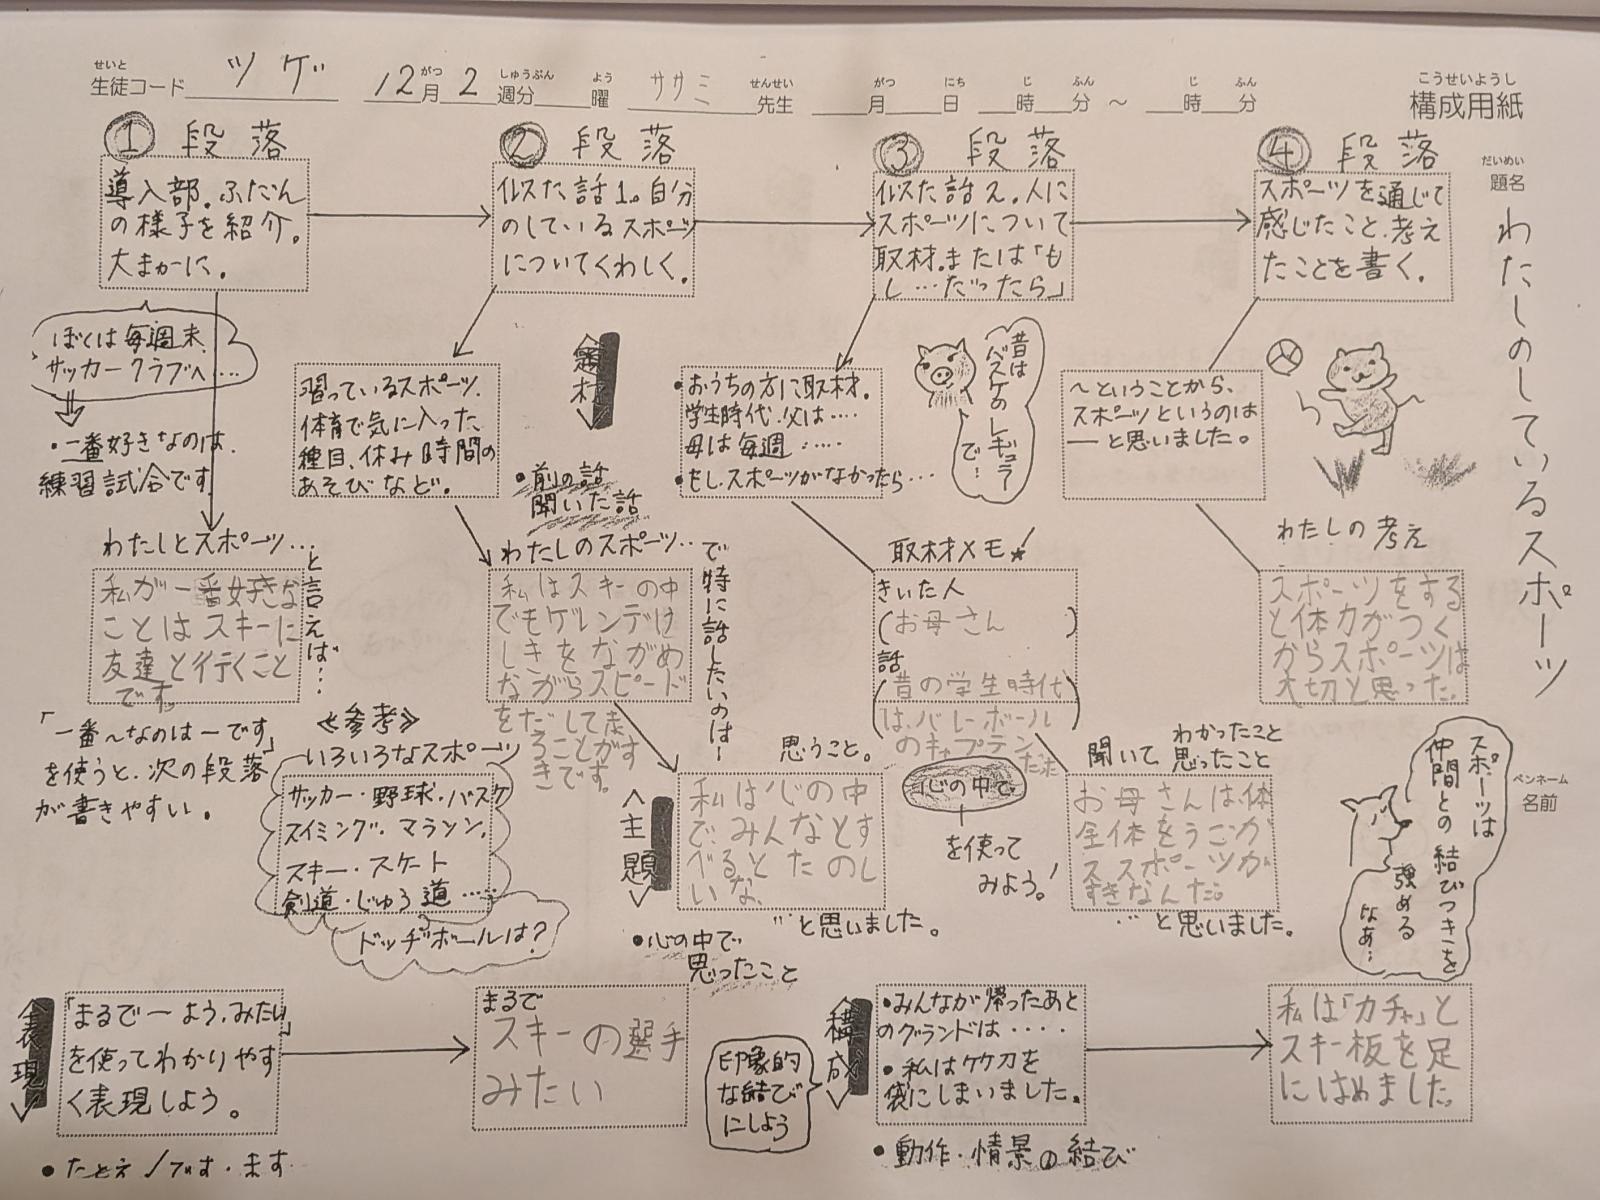 せいと
生徒コード ツゲ 12月がつ 2週分しゅうぶん 曜よう ササミ 先生せんせい 月がつ 日にち 時じ 分ふん ～ 時じ 分ふん
こうせいようし
構成用紙
だいめい
題名
わたしのしているスポーツ
ペンネーム
名前
① 段落
導入部。ふだん
の様子を紹介。
大まかに。
ぼくは毎週末、
サッカークラブへ‥‥
・一番好きなのは、
練習試合です。
わたしとスポーツ…
と言えば…
私が一番好きな
ことはスキーに
友達と行くこと
です。
「一番～なのは―です」
を使うと、次の段落
が書きやすい。
② 段落
似た話1。自分
のしているスポーツ
についてくわしく。
習っているスポーツ、
体育で気に入った
種目、休み時間の
あそびなど。
<題材>
・前の話
聞いた話
わたしのスポーツ‥
で特に話したいのは―
私はスキーの中
でもゲレンデけ
しきをながめ
ながらスピード
をだして走
ることがす
きです。
≪参考≫
いろいろなスポーツ
サッカー・野球・バスケ
スイミング・マラソン、
スキー・スケート
剣道・じゅう道‥‥
ドッヂボールは?
<主題>
思うこと。
私は心の中
で、みんなとす
べるとたのし
いな、
…と思いました。
・心の中で
思ったこと
③ 段落
似た話2。人に
スポーツについて
取材。または「も
し…だったら」
・おうちの方に取材。
学生時代、父は‥‥
母は毎週‥‥
・もし、スポーツがなかったら…
昔は
バスケのレギュラー
で…
取材メモ
きいた人
(お母さん)
話
(昔の学生時代
は、バレーボール
のキャプテンだた)
心の中で
を使って
みよう!
聞いて わかったこと
思ったこと
お母さんは、体
全体をうごか
ススポーツが
すきなんだ。
…と思いました。
④ 段落
スポーツを通じて
感じたこと、考え
たことを書く。
～ということから、
スポーツというのは
―と思いました。
わたしの考え
スポーツをする
と体力がつく
からスポーツは
大切と思った。
スポーツは
仲間との結びつきを
強める
なあ…
<表現>
「まるで―よう、みたい」
を使ってわかりやす
く表現しよう。
・たとえ/です・ます
まるで
スキーの選手
みたい
印象的
な結び
にしよう
<構成>
・みんなが帰ったあと
のグランドは・・・・
・私はケケ刀を
袋にしまいました。
・動作・情景の結び
私は「カチャ」と
スキー板を足
にはめました。